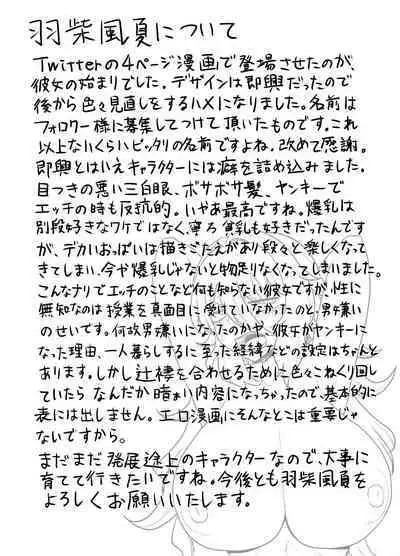 羽柴風夏について
Twitterの4ページ漫画で登場させたのが、
彼女の始まりでした。デザインは即興だったので
後から色々見直しをするハメになりました。名前は
フォロワー様に募集してつけて頂いたものです。これ
以上ないくらいピッタリの名前ですよね。改めて感謝。
即興とはいえキャラクターには癖を詰め込みました。
目つきの悪い三白眼、ボサボサ髪、ヤンキーで
エッチの時も反抗的。いやあ最高ですね。爆乳は
別段好きなワケではなく、寧ろ貧乳も好きだったんです
が、デカいおっぱいは描きごたえがあり段々と楽しくなっ
てきてしまい、今や爆乳じゃないと物足りなくなってしまいました。
こんなナリでエッチのことなど何も知らない彼女ですが、性に
無知なのは授業を真面目に受けていなかったのと、男嫌い
のせいです。何故男嫌いになったのかや、彼女がヤンキーに
なった理由、一人暮らしするに至った経緯などの設定はちゃんと
あります。しかし辻褄を合わせるために色々こねくり回し
ていたらなんだか暗い内容になっちゃったので、基本的に
表には出しません。エロ漫画にそんなとこは重要じゃ
ないですから。
まだまだ発展途上のキャラクターなので、大事に
育てて行きたいですね。今後とも羽柴風夏を
よろしくお願いいたします。